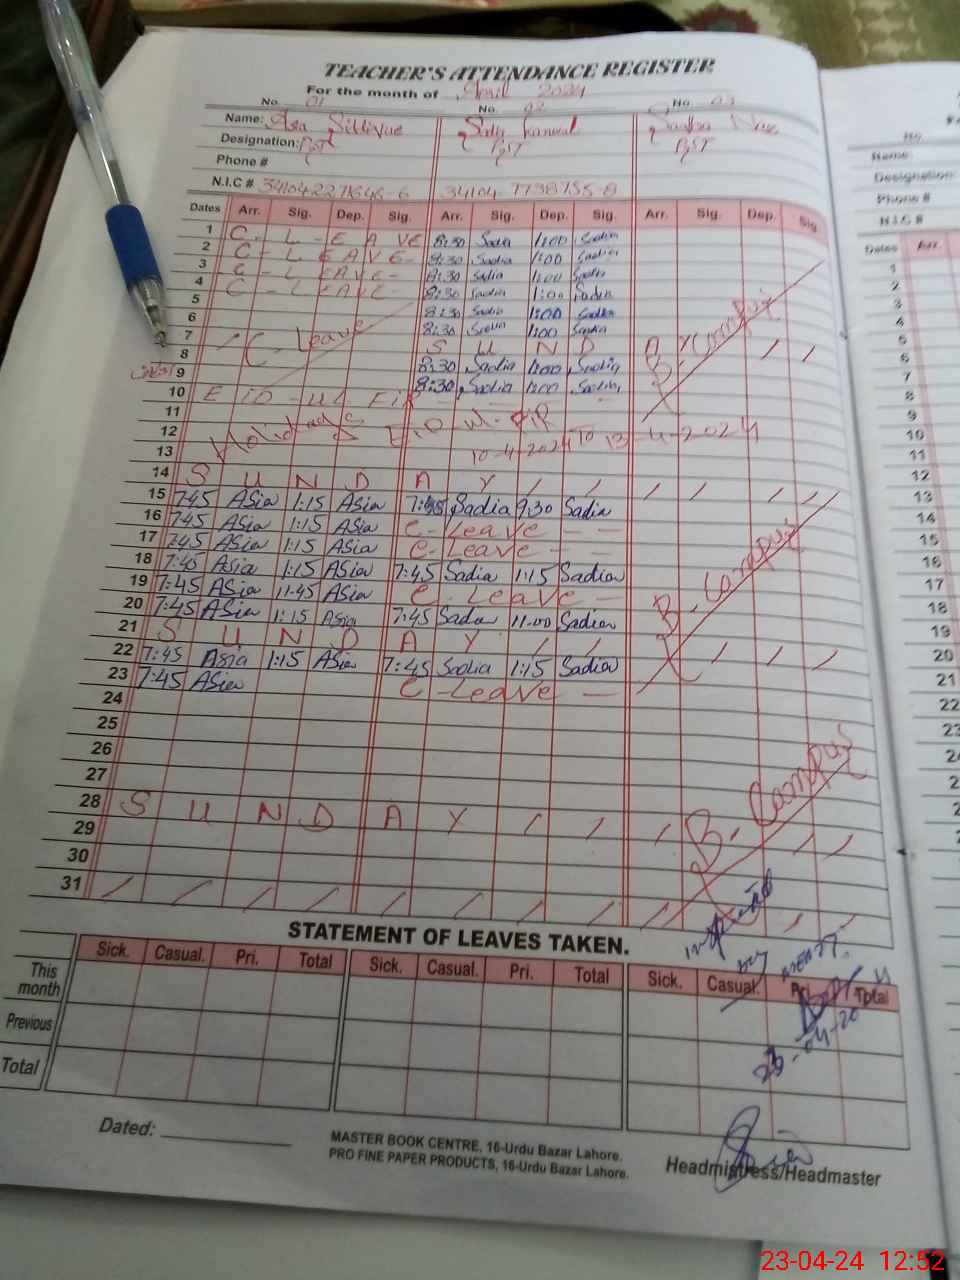 TEACHER'S ATTENDANCE REGISTER
For the month of April 2024
No. 01 No. 02 No. 03
Name: Asia
Designation: PST PST PST
Phone #
N.I.C #
Dates Arr. Sig. Dep. Sig. Arr. Sig. Dep. Sig. Arr. Sig. Dep. Sig.
1 C - L - E A VE 8:30 Sadia 1:00 Sadia
2 C - L E A V E - 8:30 Sadia 1:00 Sadia
3 C - L E A V E - 8:30 Sadia 1:00 Sadia
4 C - L E A V E - 8:30 Sadia 1:00 Sadia
5 8:30 Sadia 1:00 Sadia
6 C - Leave 8:30 Sadia 1:00 Sadia B. Campus
7 S U N D A Y
8 8:30 Sadia 1:00 Sadia
9 8:30 Sadia 1:00 Sadia
10 E i D - U L F i
11
12 Holidays EiD - ul - FiR
13 10-4-2024 TO 13-4-2024
14 S U N D A Y / / / / / /
15 7:45 ASia 1:15 ASia 7:45 Sadia 9:30 Sadia
16 7:45 ASia 1:15 ASia C - Leave - -
17 7:45 ASia 1:15 ASia C - Leave - -
18 7:45 ASia 1:15 ASia 7:45 Sadia 1:15 Sadia B. Campus
19 7:45 ASia 11:45 ASia C - Leave -
20 7:45 ASia 1:15 ASia 7:45 Sadia 11:00 Sadia
21 S U N D A Y / / / / /
22 7:45 Asia 1:15 ASia 7:45 Sadia 1:15 Sadia
23 7:45 ASia C - Leave -
24
25
26
27
28 S U N D A Y / / / / / B. Campus
29
30
31 / / / / / / / / / /
STATEMENT OF LEAVES TAKEN.
Sick. Casual. Pri. Total Sick. Casual. Pri. Total Sick. Casual. Pri. Total
This month
Previous
Total
Dated:
MASTER BOOK CENTRE, 16-Urdu Bazar Lahore.
PRO FINE PAPER PRODUCTS, 16-Urdu Bazar Lahore.
Headmistress/Headmaster
No
Name:
Designation:
Phone #
N.I.C #
Dates Arr.
1
2
3
4
5
6
7
8
9
10
11
12
13
14
15
16
17
18
19
20
21
22
23-04-24 12:52